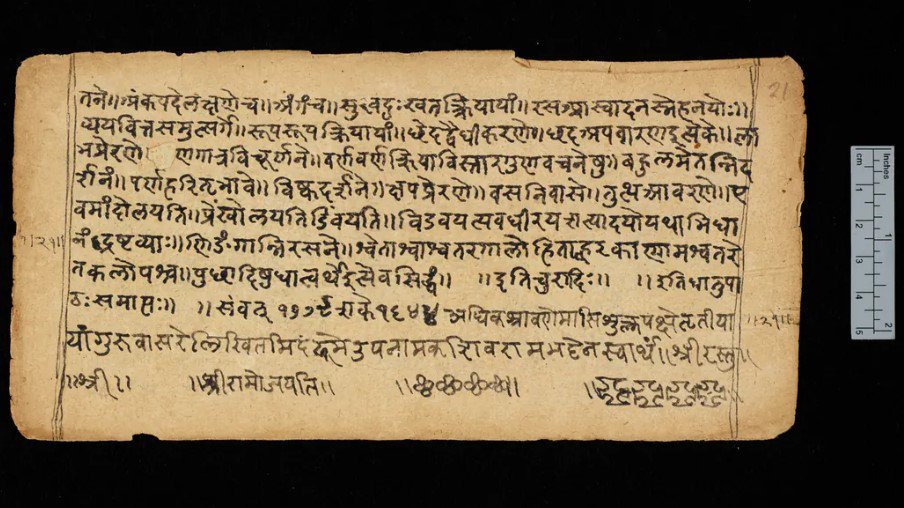 तने॥अंकपदेलक्षणेच॥अंगच॥सुखदुःखतत्क्रियायां॥रसआस्वादनस्नेहनयोः॥ 21
व्ययवित्तसमुत्सर्गे॥रूपरूपक्रियायां॥छेदद्वैधीकरणे॥छदअपवारणइत्येके॥ला
भप्रेरणे॥ व्रणगात्रविचूर्णने॥वर्णवर्णक्रियाविस्तारगुणवचनेषु॥बहुलमेतन्निद
र्शनं॥पर्णहरितभावे॥विष्कदर्शने॥क्षपप्रेरणे॥वसनिवासे॥तुत्थआवरणे॥ए
वमांदोलयति॥प्रेंखोलयतिविडंबयति॥अवधीरयत्यादयोयथाभिधा
नंद्रष्टव्याः॥णिङंगान्निरसने॥श्वेताश्वाश्वतरगालोडिताह्वरकाणामश्वतरे
तकलोपश्च॥पुच्छादिषुधात्वर्थइत्येवसिद्धं॥ ॥इतिचुरादिः॥ ॥इतिधातुपा
ठःसमाप्तः॥ ॥संवत् शके१६४४ अधिकश्रावणेमासिशुक्लपक्षेतृतीया ॥२१॥
यांगुरुवासरेलिखितमिदं उपनामक भट्टेनस्वार्थं॥श्रीरस्तु॥
॥श्री॥ ॥श्रीरामोजयति॥